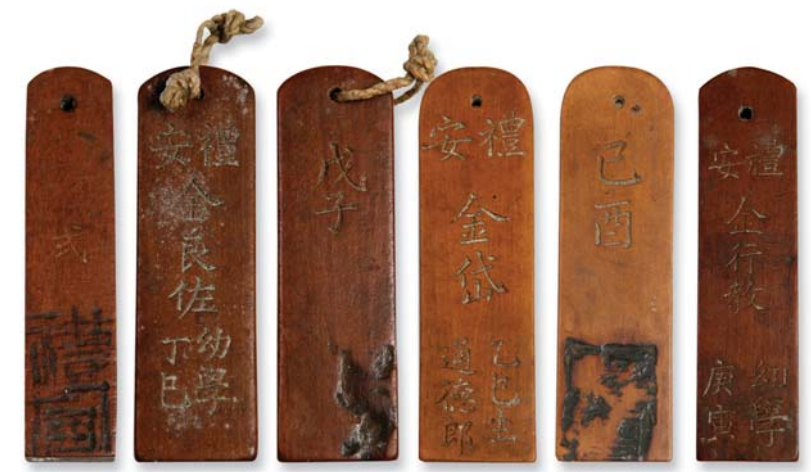 式
禮安
金良佐
幼學
丁巳
戊子
禮安
金岱
乙巳生
通德郎
己酉
禮安
金行敎
幼學
庚寅